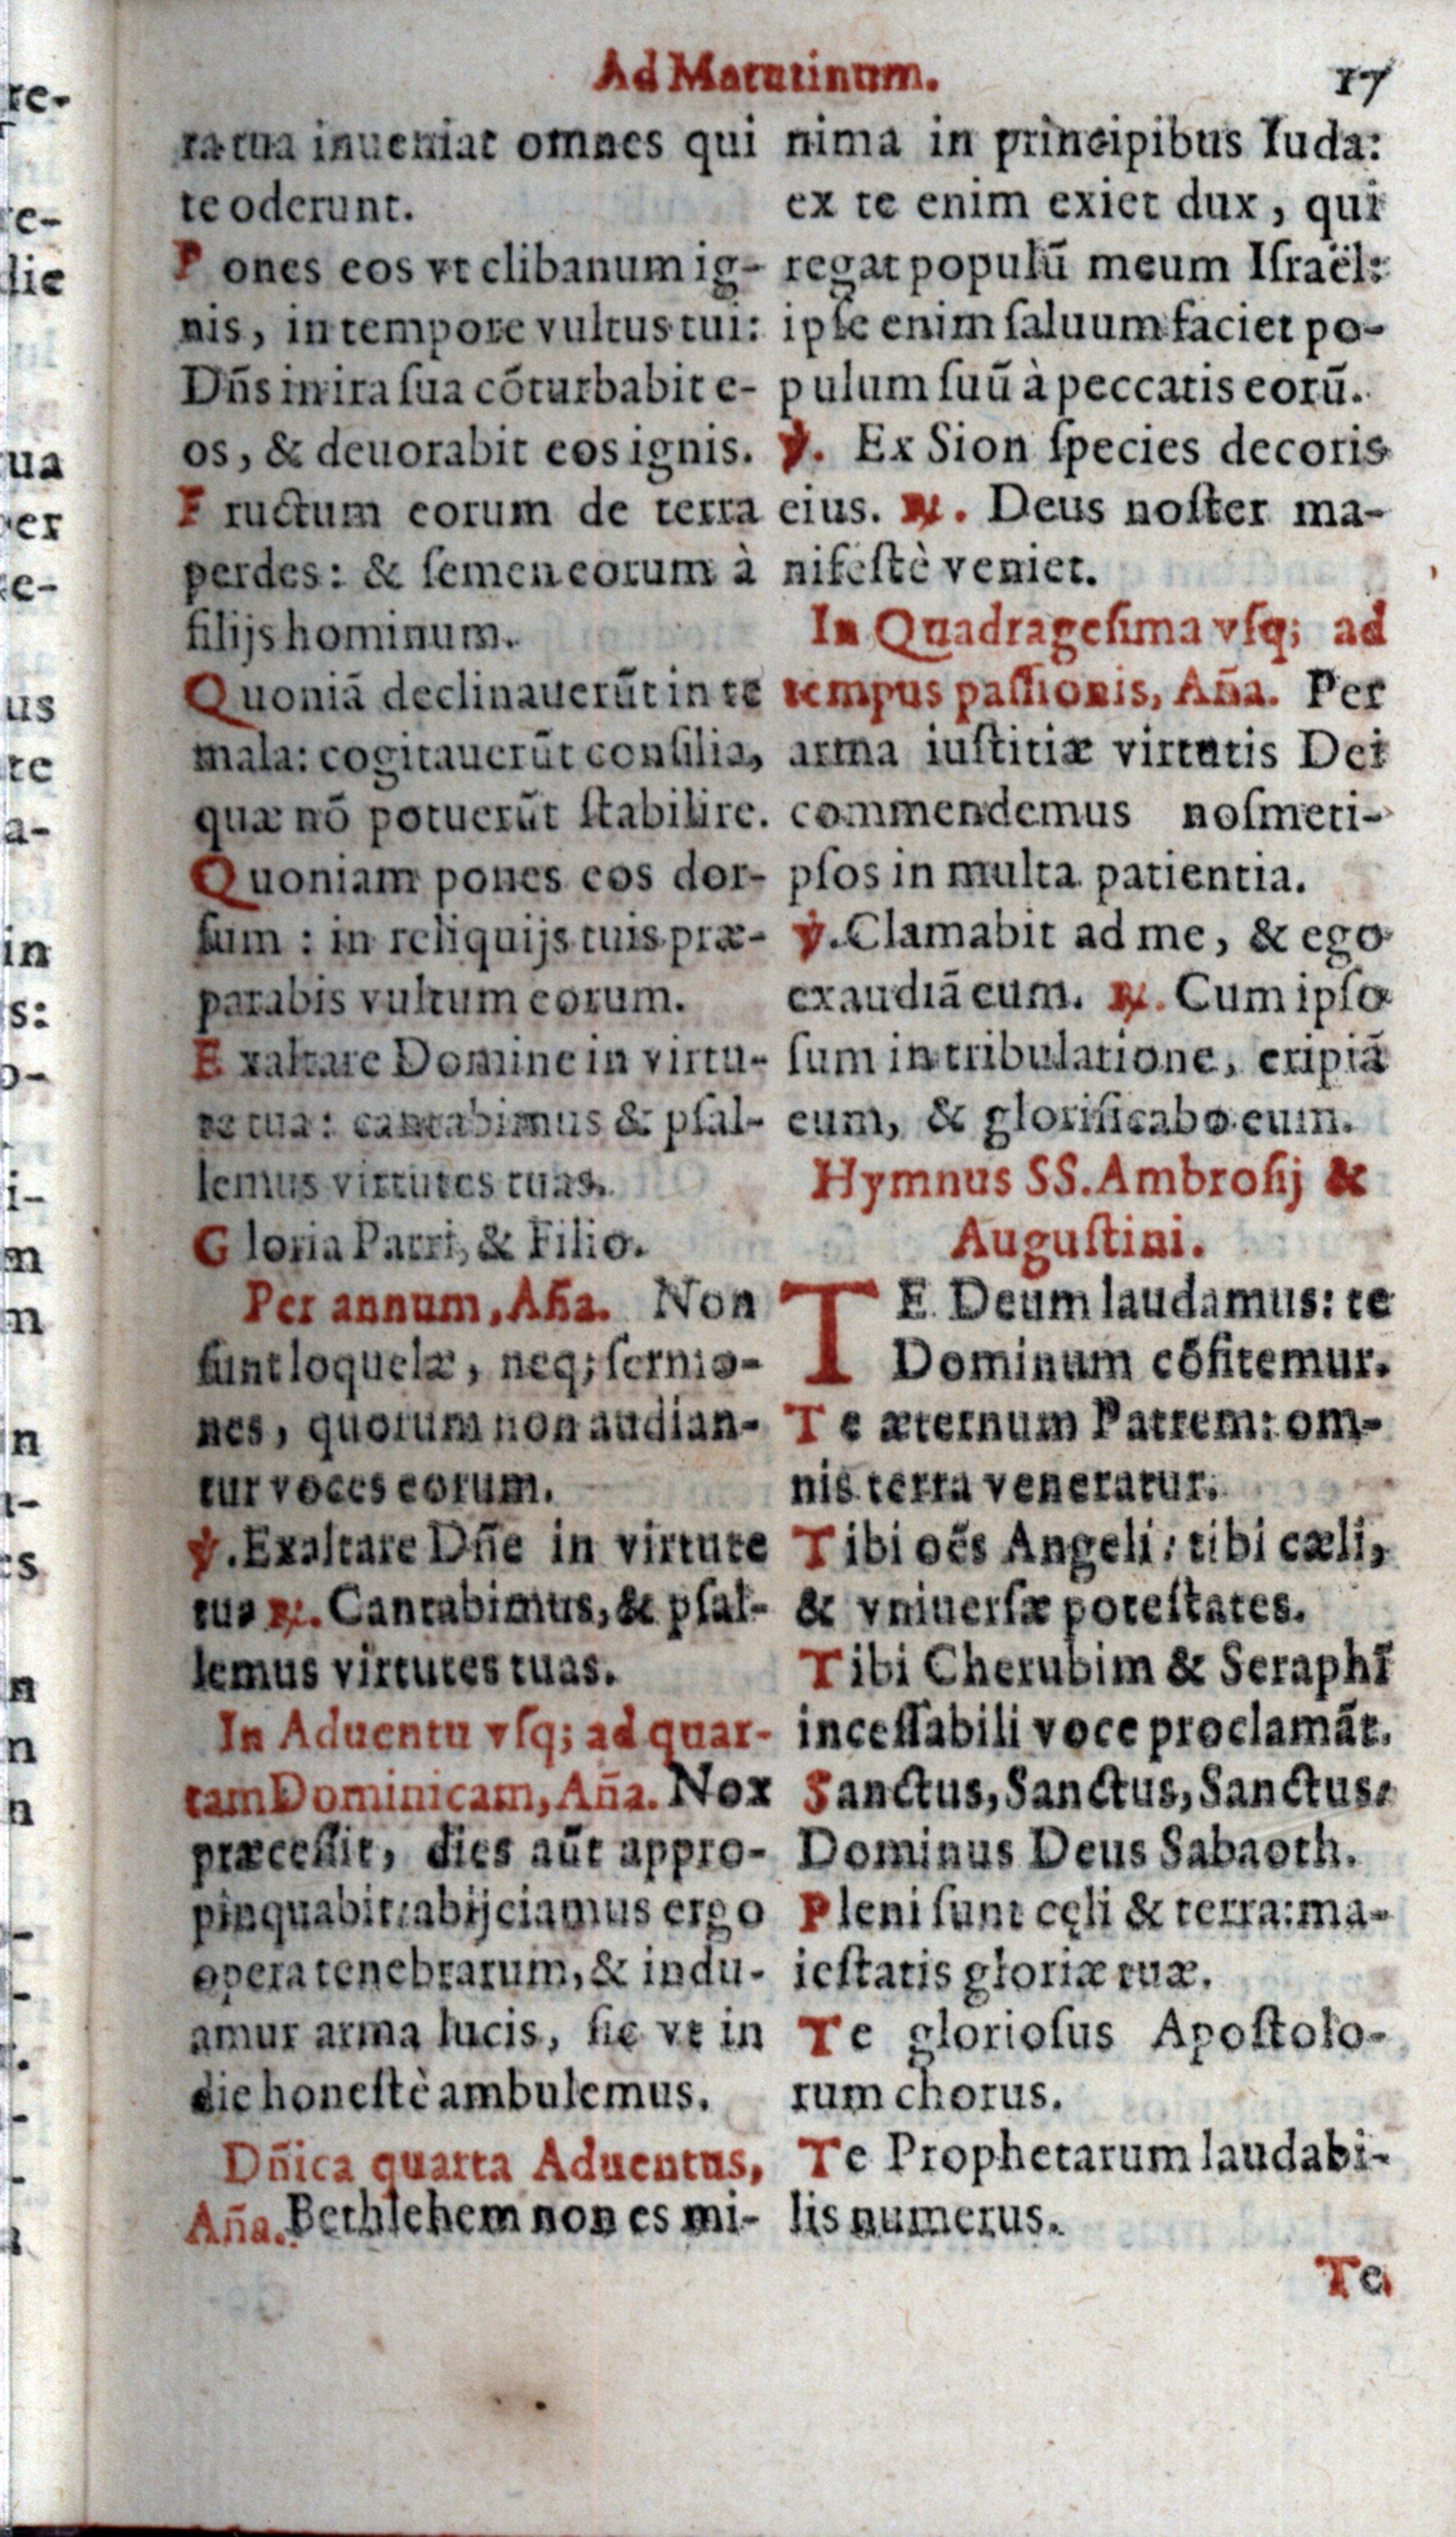 Ad Matutinum.
17
ra tua inueniat omnes qui
te oderunt.
P ones eos vt clibanum ig-
nis, in tempore vultus tui:
Dñs in ira ſua cõturbabit e-
os, & deuorabit eos ignis.
F ructum eorum de terra
perdes: & ſemen eorum à
filijs hominum.
Quoniã declinauerũt in te
mala: cogitauerũt conſilia,
quæ nõ potuerũt ſtabilire.
Quoniam pones eos dor-
ſum: in reliquijs tuis præ-
parabis vultum eorum.
E xaltare Domine in virtu-
te tua: cantabimus & pſal-
lemus virtutes tuas.
G loria Patri, & Filio.
Per annum, Añа. Non
ſunt loquelæ, neq; ſermo-
nes, quorum non audian-
tur voces eorum.
℣. Exaltare Dñe in virtute
tua ℟. Cantabimus, & pſal-
lemus virtutes tuas.
In Aduentu vſq; ad quar-
tam Dominicam, Aña. Nox
præceſſit, dies aũt appro-
pinquabit: abijciamus ergo
opera tenebrarum, & indu-
amur arma lucis, ſic vt in
die honeſtè ambulemus.
Dñica quarta Aduentus,
Aña. Bethlehem non es mi-
nima in principibus Iuda:
ex te enim exiet dux, qui
regat populũ meum Iſraël:
ipſe enim ſaluum faciet po-
pulum ſuũ à peccatis eorũ.
℣. Ex Sion ſpecies decoris
eius. ℟. Deus noſter ma-
nifeſtè veniet.
In Quadrageſima vſq; ad
tempus paſſionis, Aña. Per
arma iuſtitiæ virtutis Dei
commendemus noſmeti-
pſos in multa patientia.
℣. Clamabit ad me, & ego
exaudiã eum. ℟. Cum ipſo
ſum in tribulatione, eripiã
eum, & glorificabo eum.
Hymnus SS. Ambroſij &
Auguſtini.
TE Deum laudamus: te
Dominum cõfitemur.
T e æternum Patrem: om-
nis terra veneratur.
T ibi oẽs Angeli: tibi cæli,
& vniuerſæ poteſtates.
T ibi Cherubim & Seraphĩ
inceſſabili voce proclamãt.
Sanctus, Sanctus, Sanctus,
Dominus Deus Sabaoth.
P leni ſunt cęli & terra: ma-
ieſtatis gloriæ tuæ.
Te glorioſus Apoſtolo-
rum chorus.
Te Prophetarum laudabi-
lis numerus.
Te